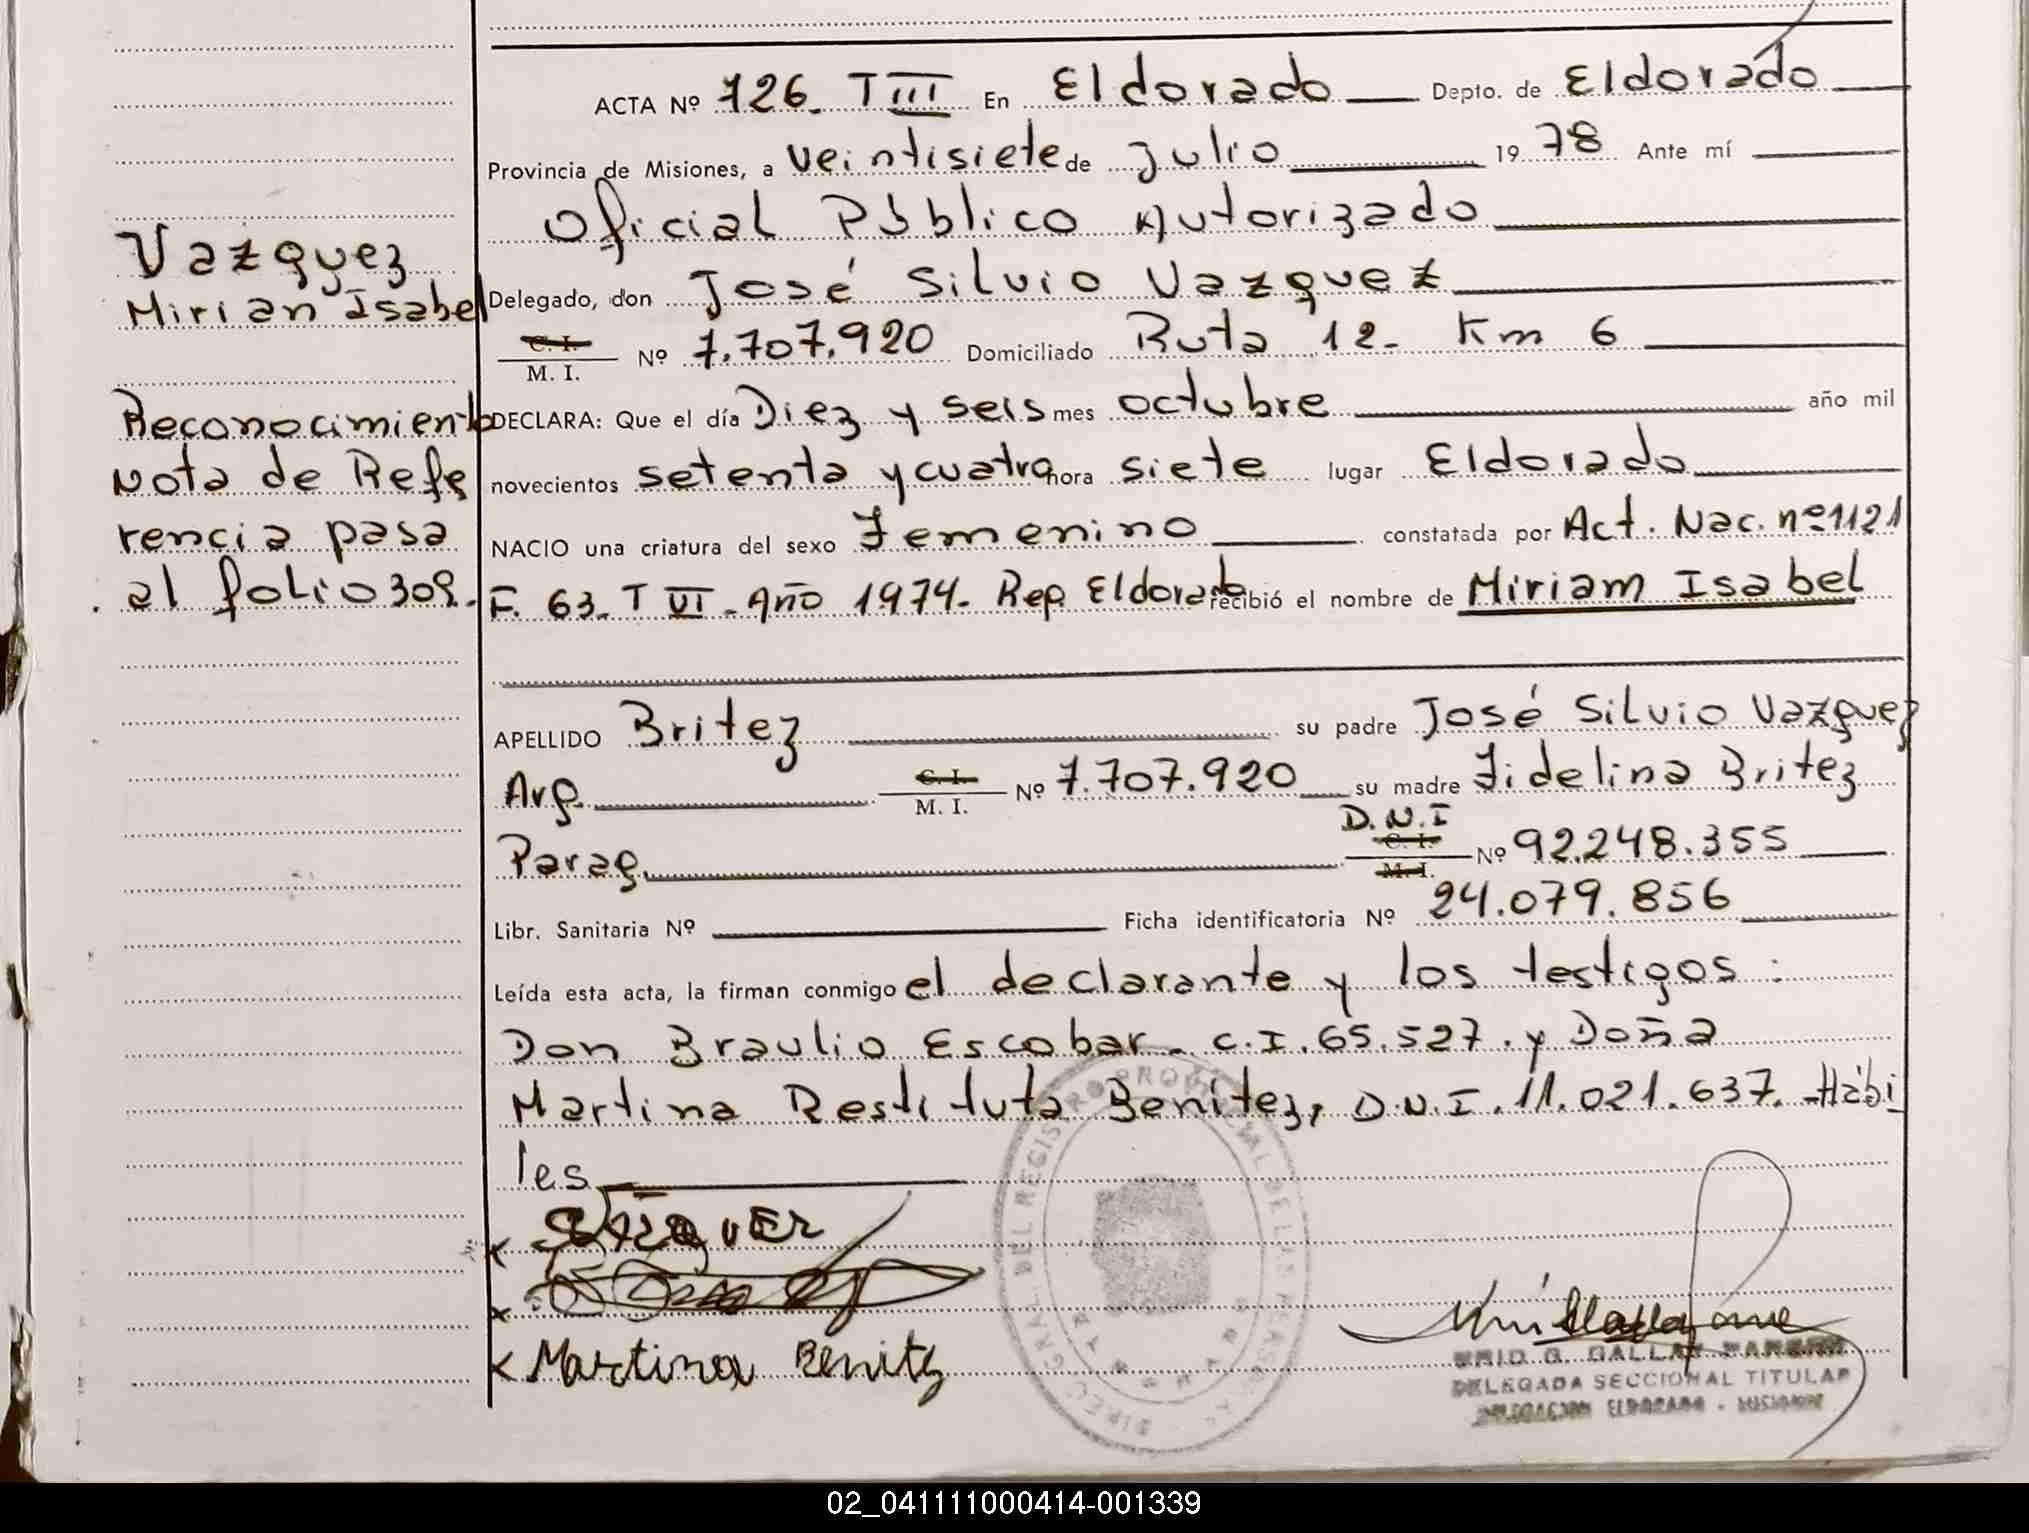 ACTA Nº 726. T III En Eldorado Depto. de Eldorado
Provincia de Misiones, a veintisiete de Julio 19 78 Ante mí
Oficial Público Autorizado
Delegado, don José Silvio Vazquez
C. I.
M. I. Nº 7.707.920 Domiciliado Ruta 12- Km 6
DECLARA: Que el día Diez y seis mes octubre año mil
novecientos setenta y cuatro hora siete lugar Eldorado
NACIO una criatura del sexo Femenino constatada por Act. Nac. nº 1121
F. 63. T VI - Año 1974- Rep. Eldorado recibió el nombre de Miriam Isabel
APELLIDO Britez su padre José Silvio Vazquez
Arg. C. I. M. I. Nº 7.707.920 su madre Fidelina Britez
Parag. D.N.I C. I. M. I. Nº 92.248.355
Libr. Sanitaria Nº Ficha identificatoria Nº 24.079.856
Leída esta acta, la firman conmigo el declarante y los testigos:
Don Braulio Escobar. C.I. 65.527. y Doña
Martina Restituta Benitez, D.N.I. 11.021.637. Hábi
les
Vazquez
Mirian Isabel
Reconocimiento
Nota de Refe
rencia pasa
al folio 309.-
VAZQUEZ
Martina Benitz
DIREC. GRAL. DEL REGISTRO PROVINCIAL DE LAS PERSONAS
DELEGADA SECCIONAL TITULAR
DELEGACION ELDORADO - MISIONES
02_041111000414-001339